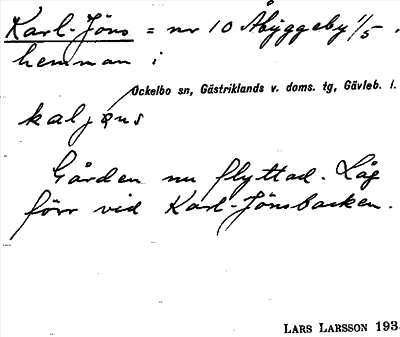 Karl-Jöns = nr 10 Åbyggeby 1/5.
hemman i
Ockelbo sn, Gästriklands v. doms. tg, Gävleb. l.
kaljøns
Gården nu flyttad. Låg
förr vid Karl-Jönsbacken.
LARS LARSSON 193